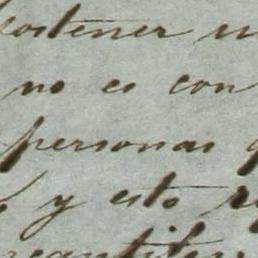 sostener u
no es con
personas q
y esto re